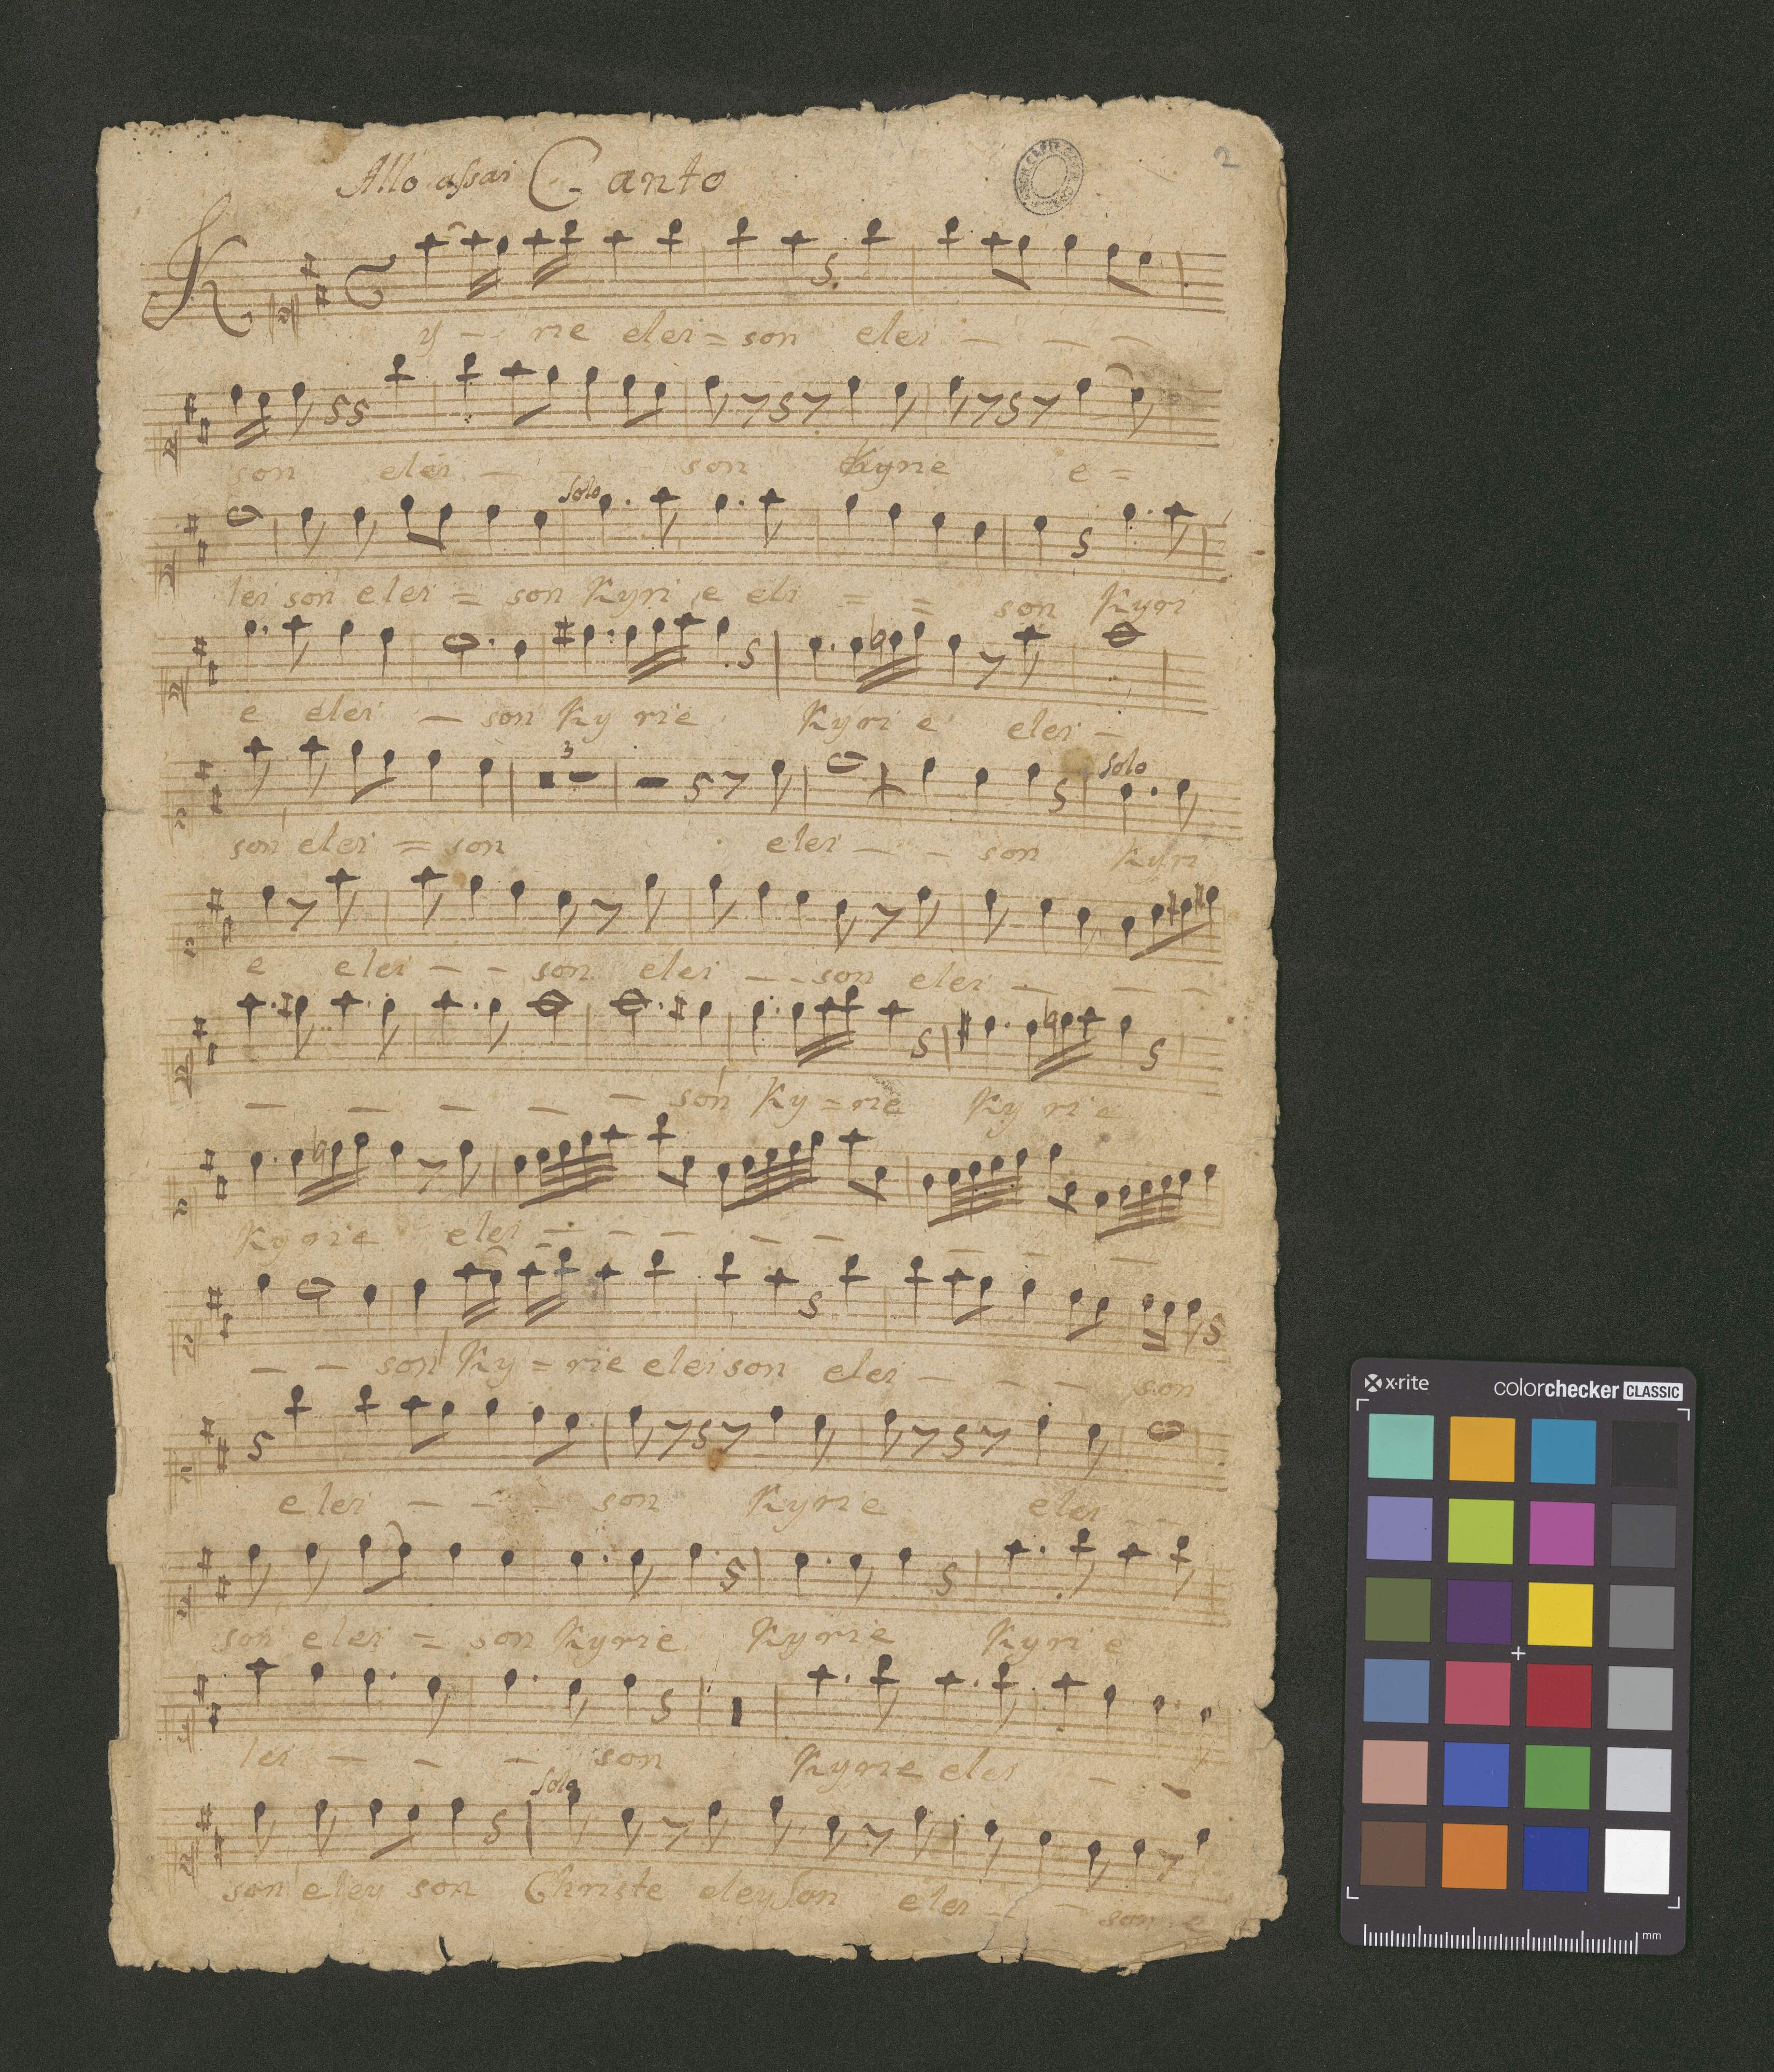 Allo assai Canto
2
Ky - - rie elei = son elei - - -
son elei - - son Kyrie e =
Solo
lei son elei = son Kyri e elei = = son Kyri
e elei - son Ky rie Kyri e elei -
3
Solo
son elei = son elei - - son Kyri
e elei - - son elei - - son elei - - -
- - - - - son Ky = rie Ky rie
Kyrie elei - - - - - - - -
- - son Ky = rie eleison elei - - - son
elei - - - son Kyrie elei - -
son elei = son Kyrie Kyrie Kyri e
lei - - - son Kyrie elei - -
Solo
son eley son Christe eleyson elei - - son e
x-rite
colorchecker CLASSIC
mm